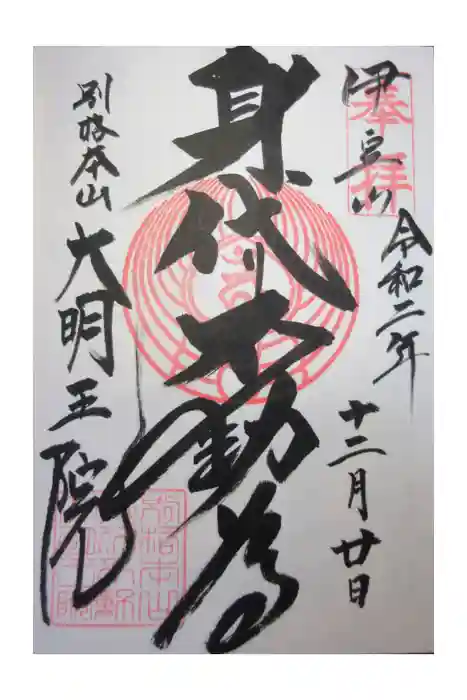 奉拝
伊豆山
令和二年
十二月廿日
身代り不動尊
別格本山
大明王院